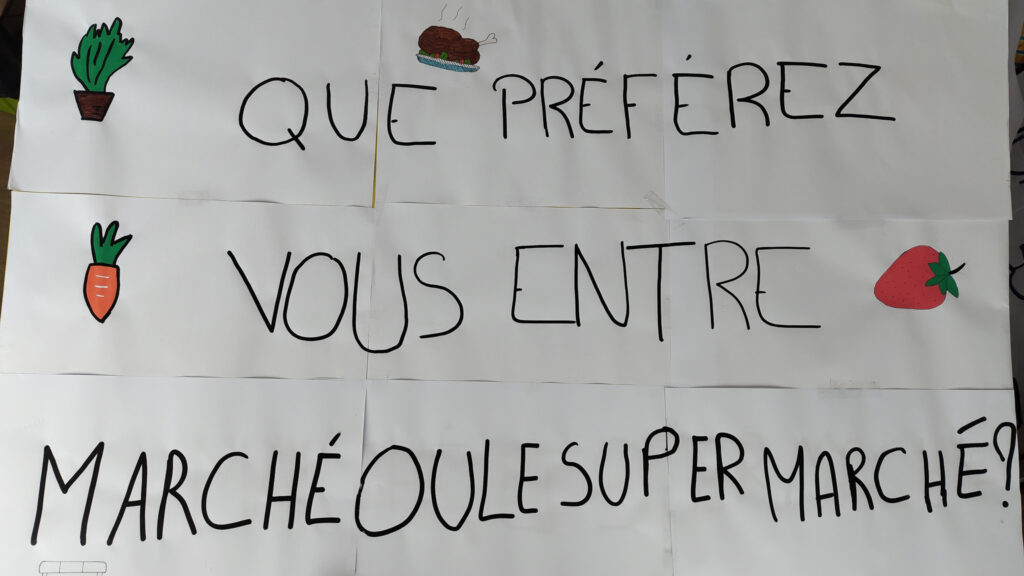 QUE PRÉFÉREZ
VOUS ENTRE
MARCHÉ OU LE SUPER MARCHÉ?